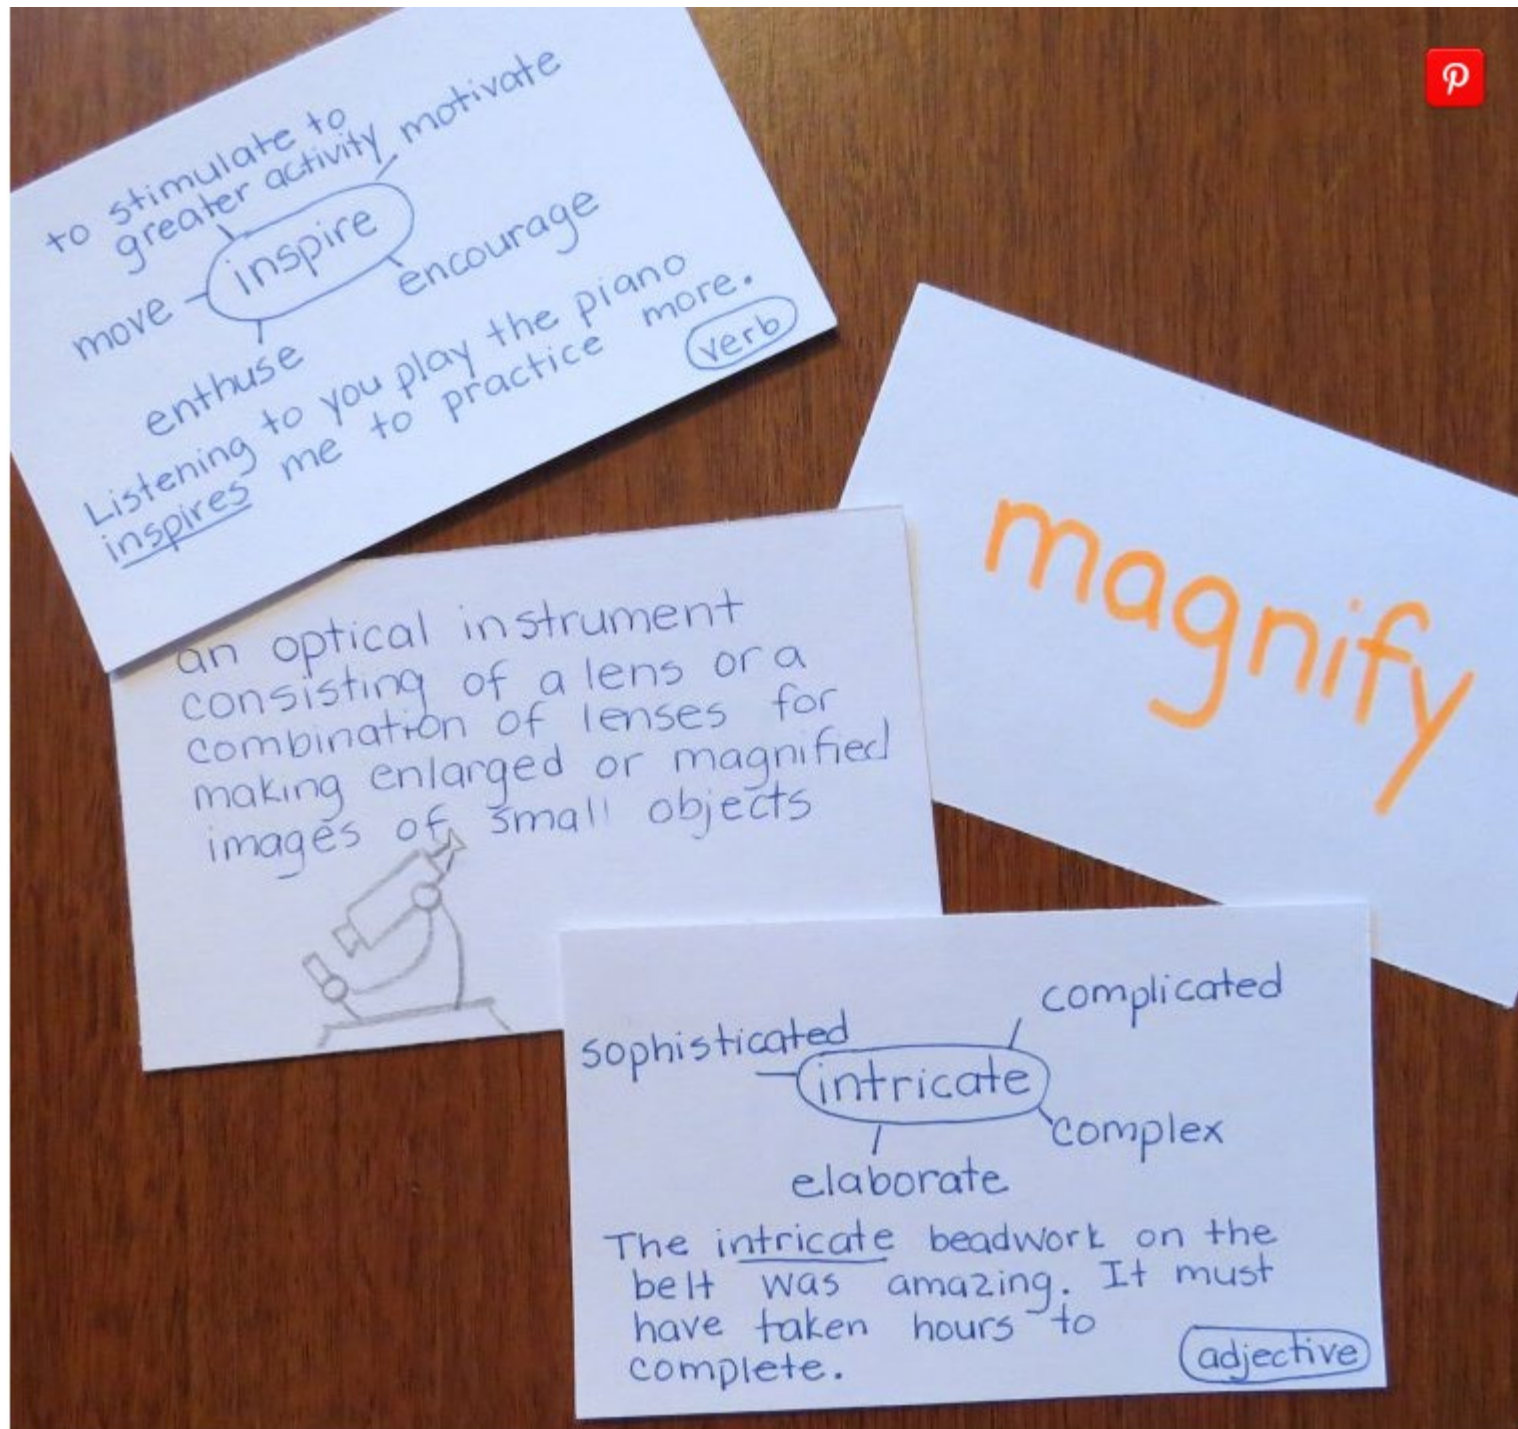 to stimulate to
greater activity
motivate
inspire
move
encourage
enthuse
Listening to you play the piano
inspires me to practice more.
verb
magnify
an optical instrument
consisting of a lens or a
combination of lenses for
making enlarged or magnified
images of small objects
complicated
sophisticated
intricate
complex
elaborate
The intricate beadwork on the
belt was amazing. It must
have taken hours to
complete.
adjective